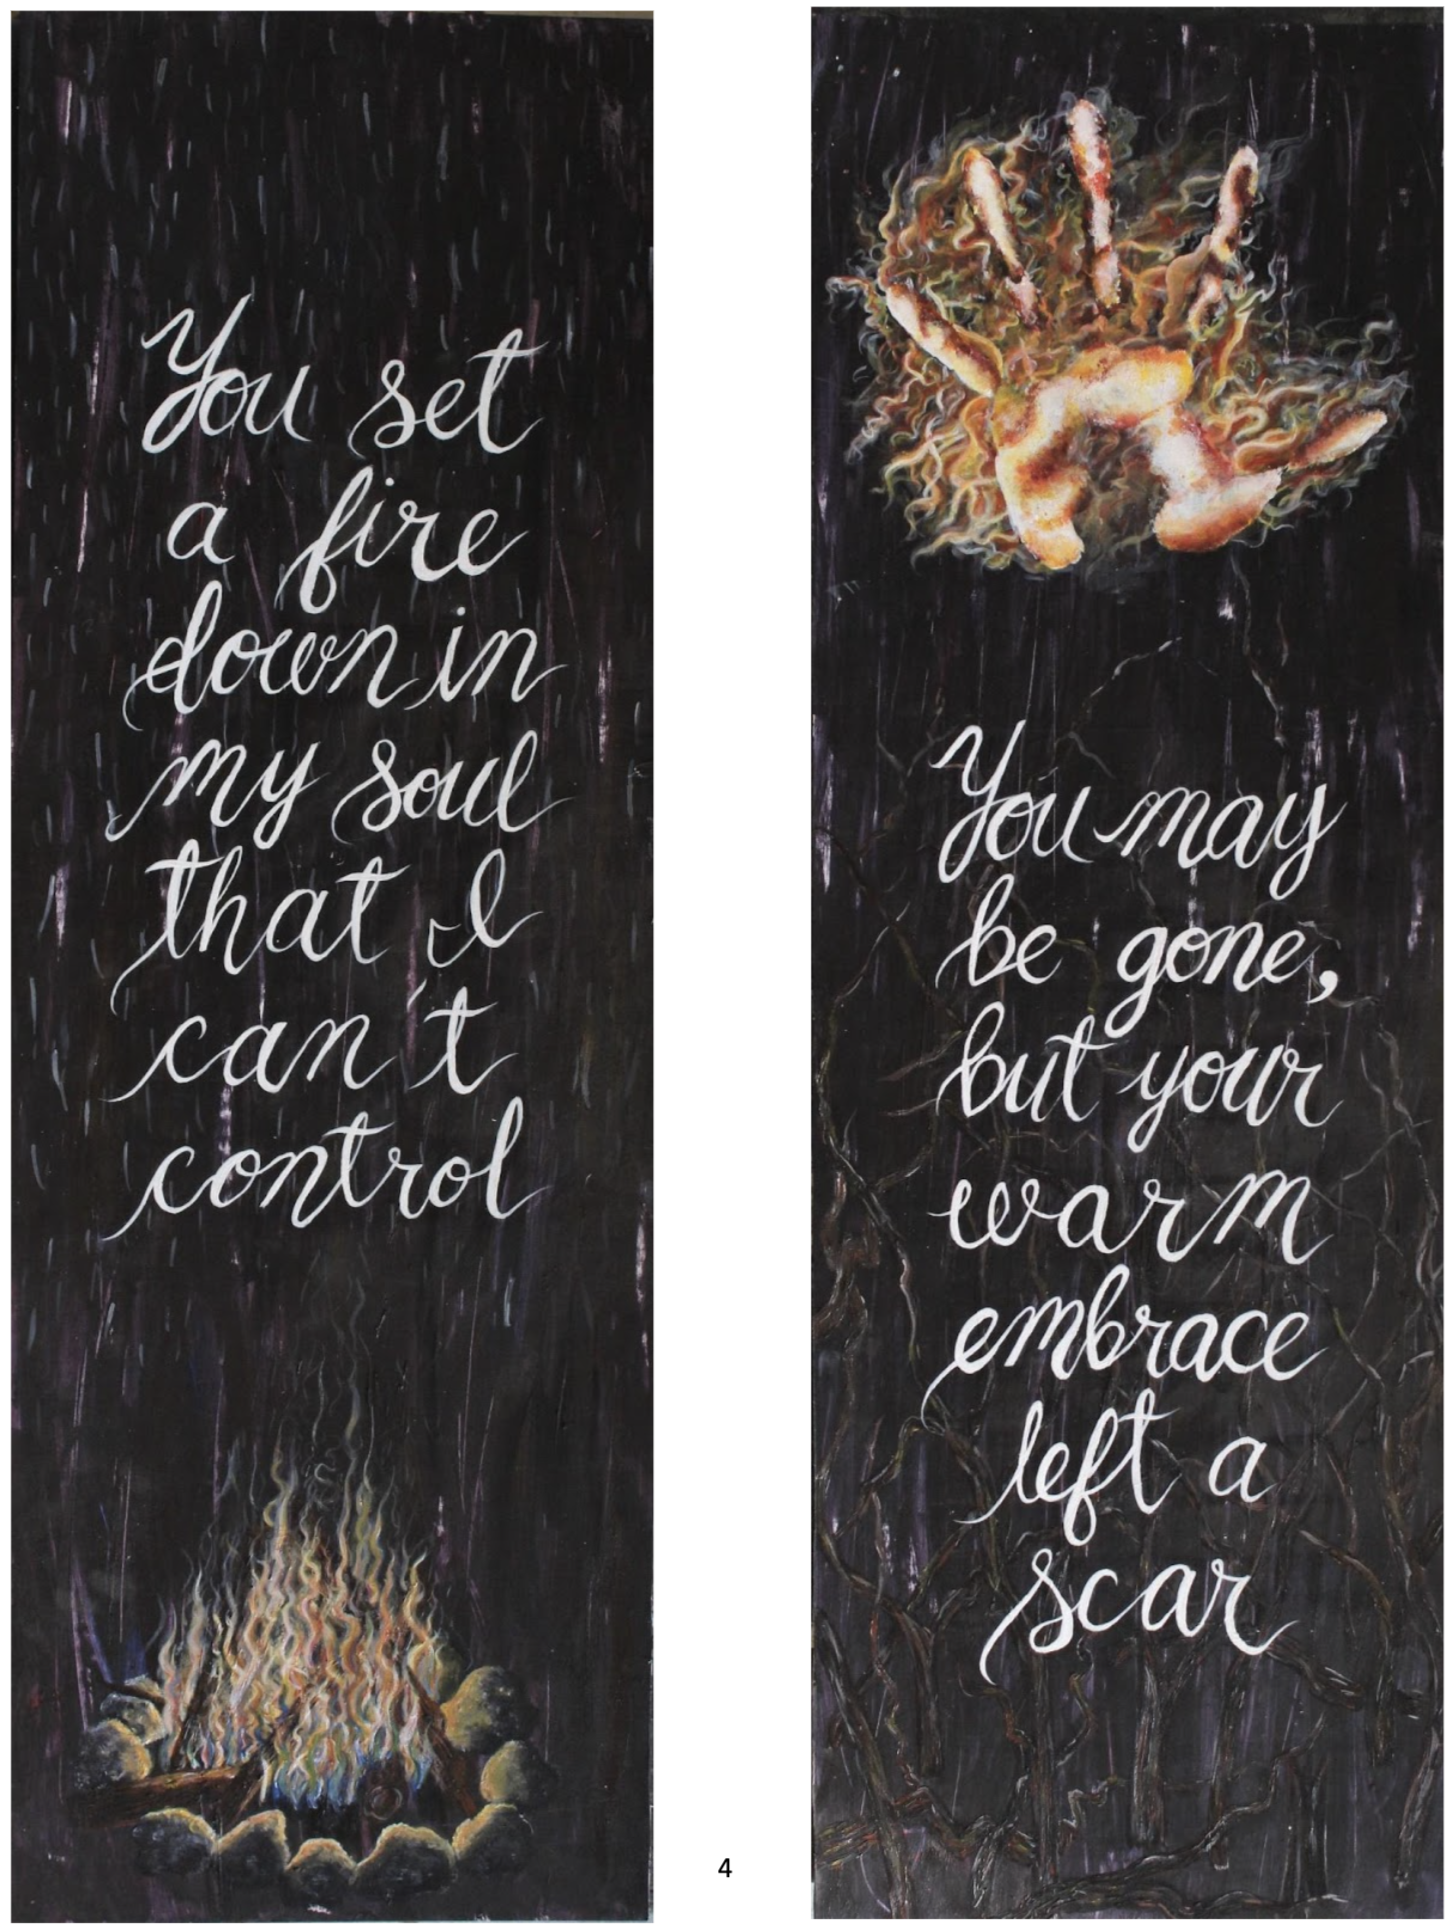 You set
a fire
down in
my soul
that I
can't
control
You may
be gone,
but your
warm
embrace
left a
scar
4